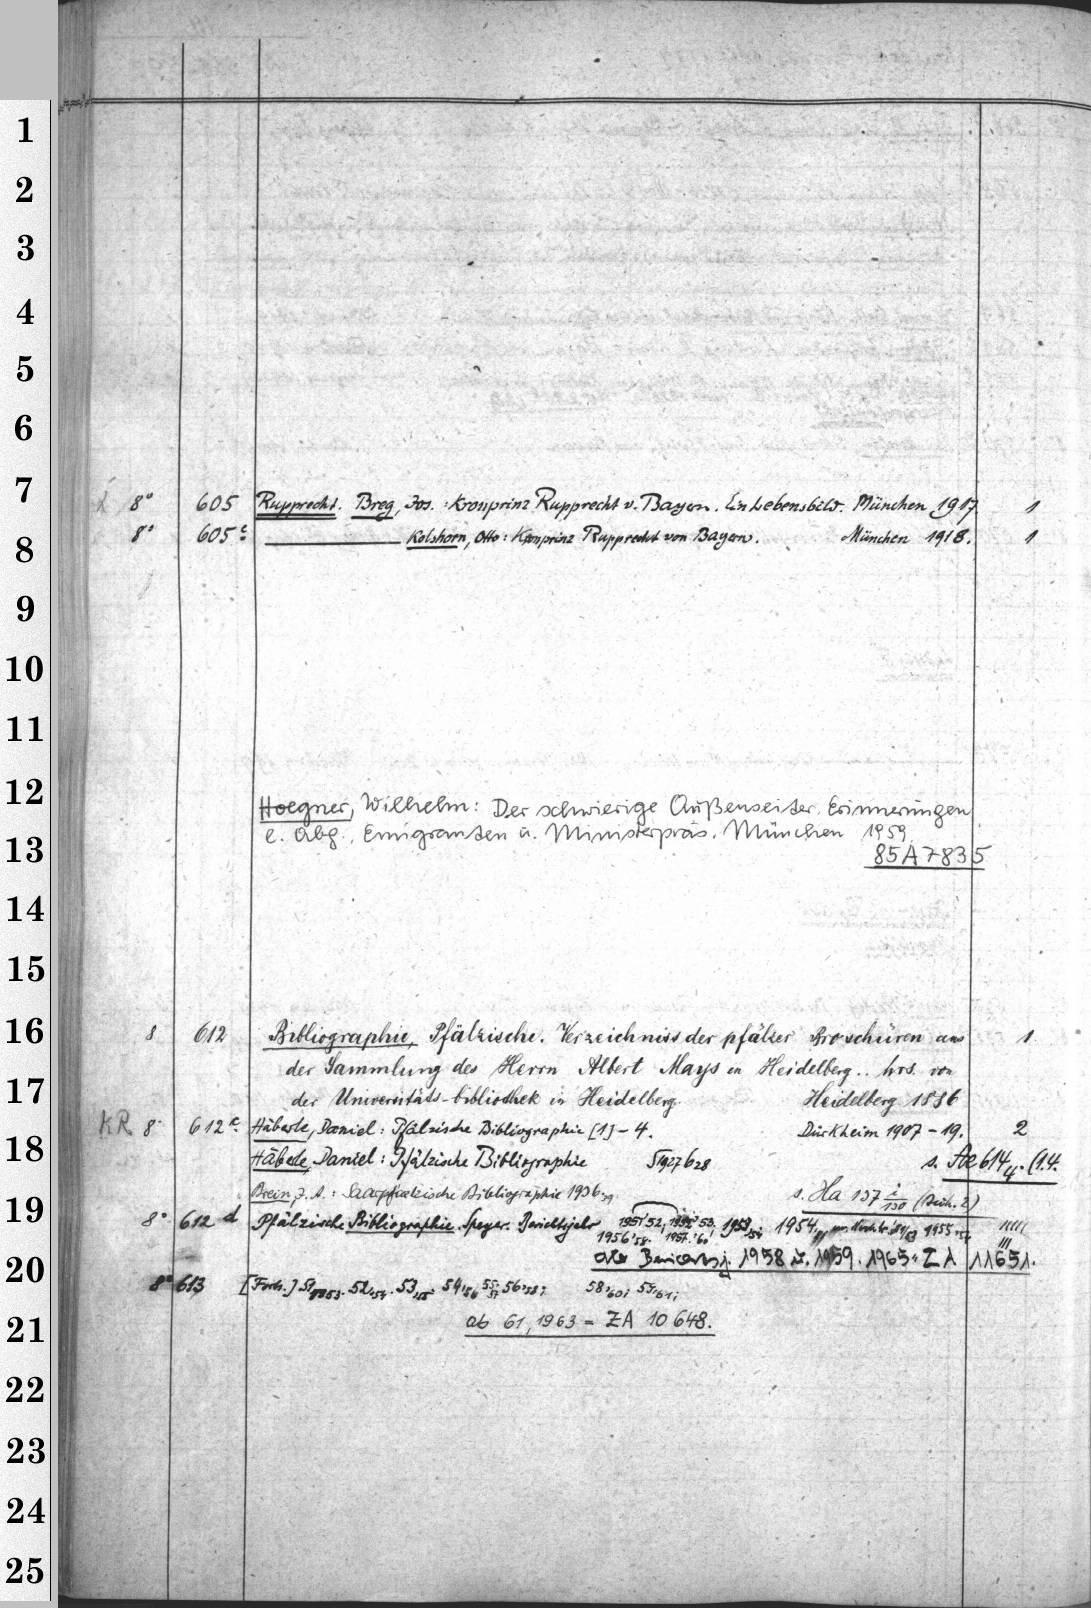 1
2
3
4
5
6
7
8° 605 Rupprecht. Breg, Jos.: Kronprinz Rupprecht v. Bayern. Ein Lebensbild. München 1917 1
8
8° 605 c Kolshorn, Otto: Kronprinz Rupprecht von Bayern. München 1918. 1
9
10
11
12
Hoegner, Wilhelm: Der schwierige Außenseiter. Erinnerungen
13
e. Abg., Emigranten u. Ministerpräs. München 1959.
85 A 7835
14
15
16
8 612 Bibliographie, Pfälzische. Verzeichniss der pfälzer Broschüren aus 1
der Sammlung des Herrn Albert Mays in Heidelberg.. hrs. von
17
der Universitäts-bibliothek in Heidelberg. Heidelberg 1886
KR 8° 612 c. Häberle, Daniel: Pfälzische Bibliographie [1] - 4. Dürkheim 1907 - 19. 2
18
Häberle, Daniel: Pfälzische Bibliographie 5 1927 6 28 s. 614 4. (1.4.
Brein, F. A.: Saarpfälzische Bibliographie 1936 s. Ha 137 i/130 (Beih. 2)
19
8° 612 d Pfälzische Bibliographie. Speyer. Berichtsjahr 1951 52, 53, 1953 54 1954 1955
1956 58. 1957 60
20
ab 1958 1959. 1965 = ZA 11651.
8° 613 [Forts.] 51 1953. 52 54. 53 55 54 56 55 57 56 58; 58 60; 61;
21
ab 61, 1963 = ZA 10 648.
22
23
24
25